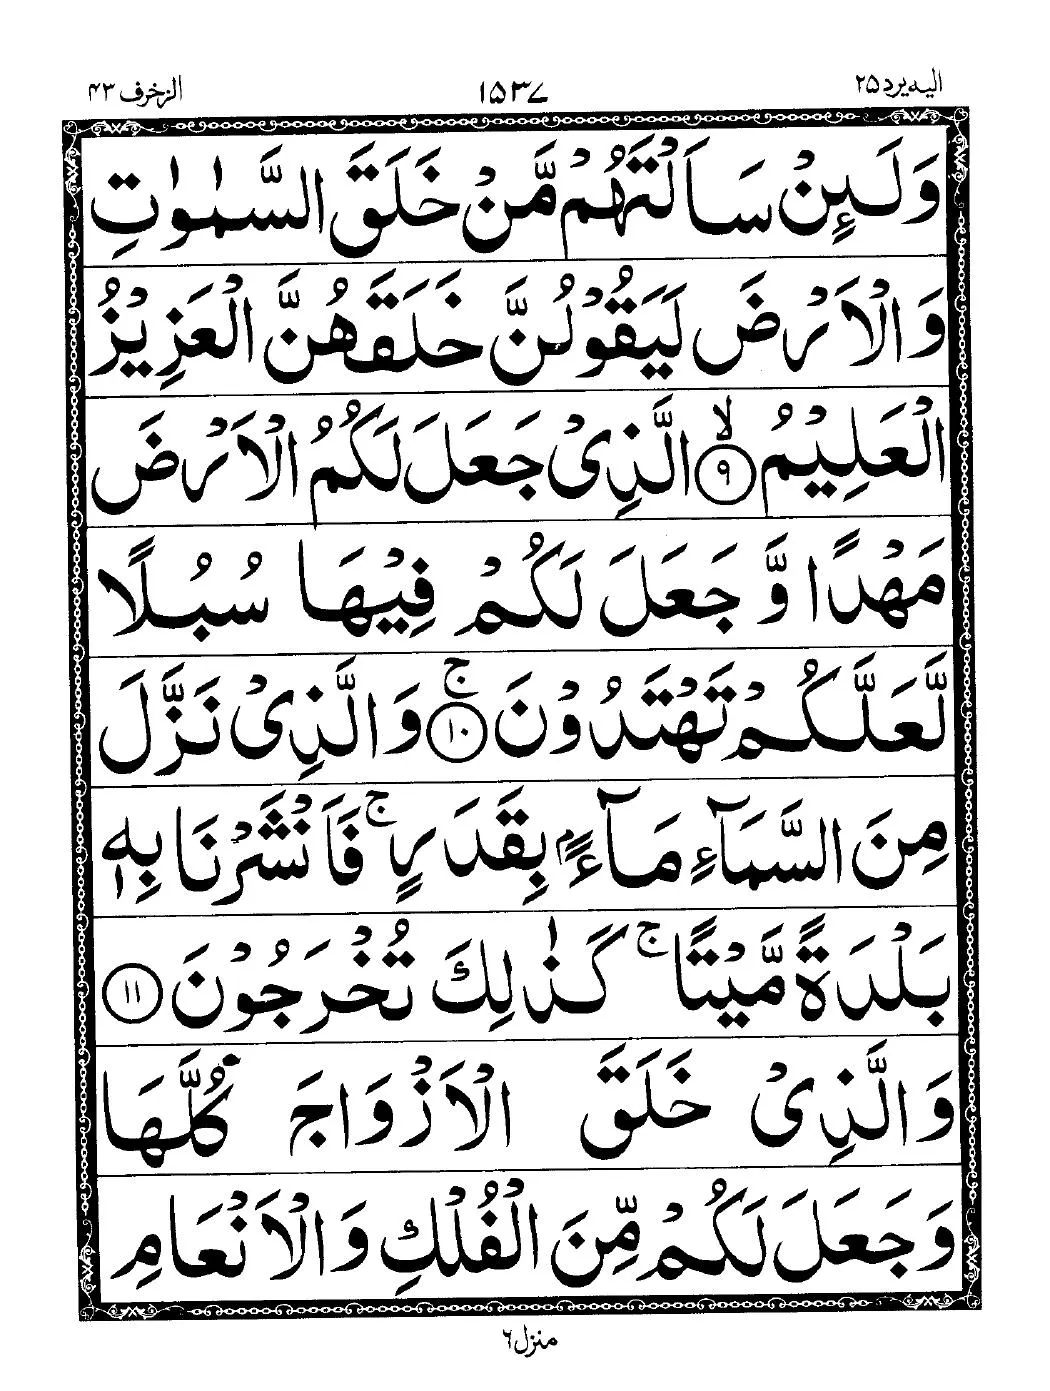 الزخرف ۴۳ ۱۵۳۷ الیه یرد ۲۵
وَلَىِٕنْ سَاَلْتَهُمْ مَّنْ خَلَقَ السَّمٰوٰتِ
وَالْاَرْضَ لَیَقُوْلُنَّ خَلَقَهُنَّ الْعَزِیْزُ
الْعَلِیْمُ ۙ۹ الَّذِیْ جَعَلَ لَكُمُ الْاَرْضَ
مَهْدًا وَّ جَعَلَ لَكُمْ فِیْهَا سُبُلًا
لَّعَلَّكُمْ تَهْتَدُوْنَ ۚ۱۰ وَالَّذِیْ نَزَّلَ
مِنَ السَّمَآءِ مَآءًۢ بِقَدَرٍ ۚ فَاَنْشَرْنَا بِهٖ
بَلْدَةً مَّیْتًا ۚ كَذٰلِكَ تُخْرَجُوْنَ ۱۱
وَالَّذِیْ خَلَقَ الْاَزْوَاجَ كُلَّهَا
وَجَعَلَ لَكُمْ مِّنَ الْفُلْكِ وَالْاَنْعَامِ
منزل ۶